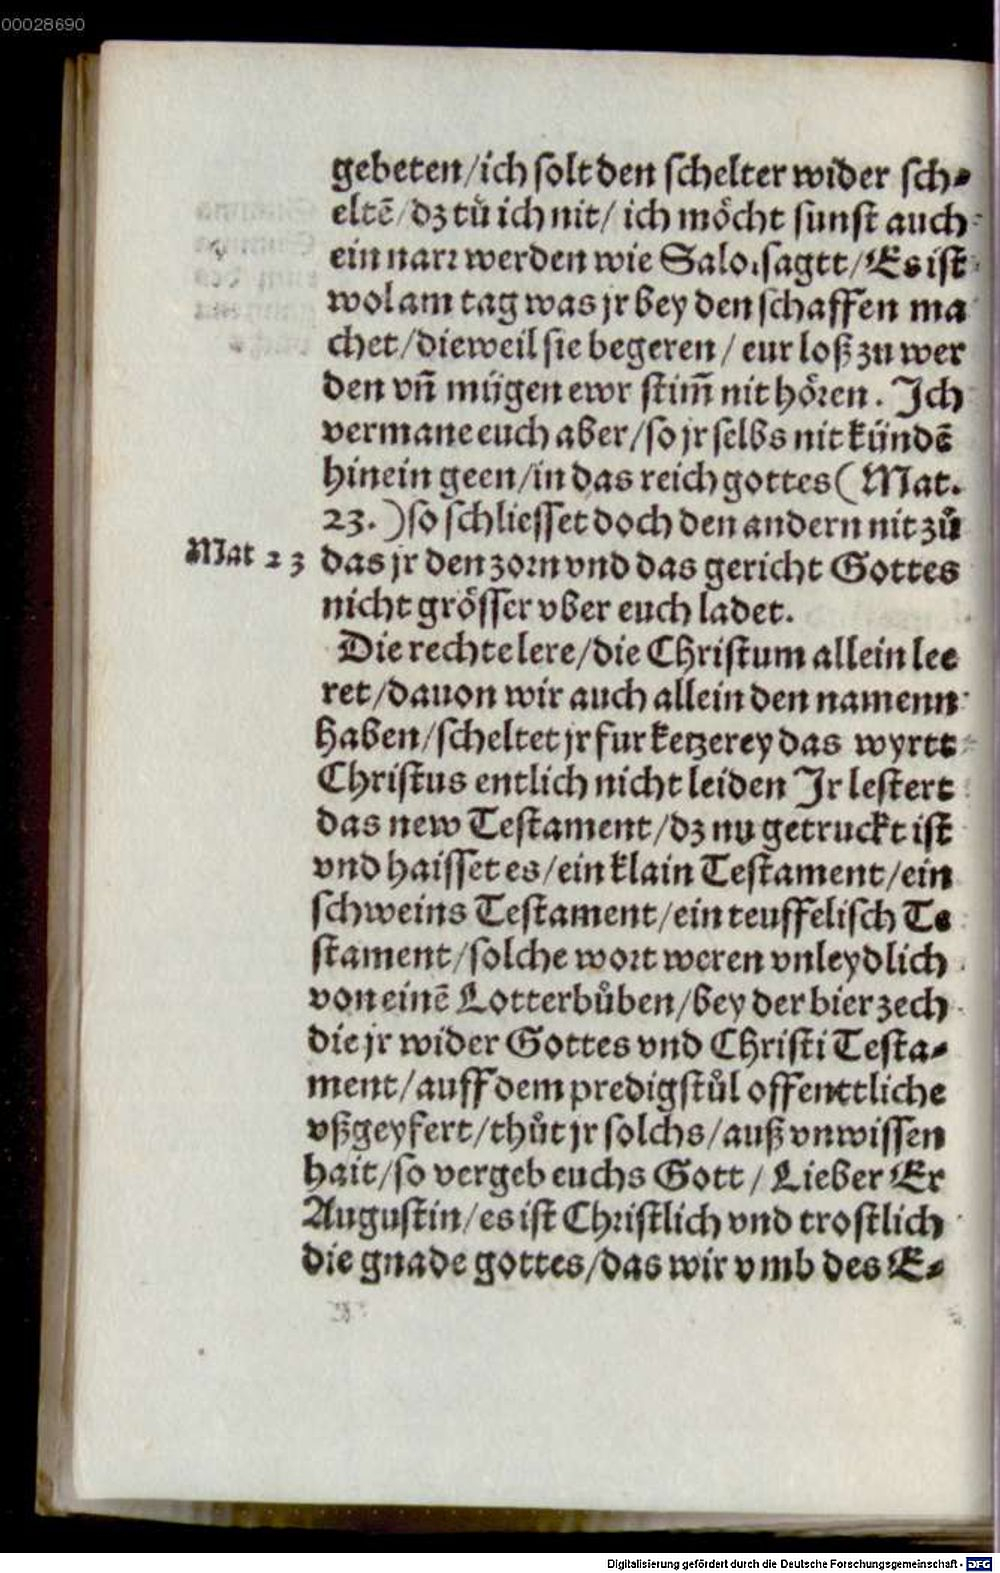 00028690
gebeten/ich solt den schelter wider sch⸗
eltē/dz tů ich nit/ ich möcht sunst auch
ein narr werden wie Salo.sagtt/Es ist
wol am tag was jr bey den schaffen ma
chet/dieweil sie begeren/ eur loß zu wer
den vn̄ mügen ewr stim̄ nit hören. Ich
vermane euch aber/so jr selbs nit kündē
hinein geen/in das reich gottes(Mat.
23.)so schliesset doch den andern nit zů
Mat 23 das jr den zorn vnd das gericht Gottes
nicht grösser vber euch ladet.
Die rechte lere/die Christum allein lee
ret/dauon wir auch allein den namenn
haben/scheltet jr fur ketzerey das wyrtt
Christus entlich nicht leiden Ir lestert
das new Testament/dz nu getruckt ist
vnd haisset es/ein klain Testament/ein
schweins Testament/ein teuffelisch Te
stament/solche wort weren vnleydlich
von einē Lotterbůben/bey der bier zech
die jr wider Gottes vnd Christi Testa⸗
ment/auff dem predigstůl offenttliche
vßgeyfert/thůt jr solchs/auß vnwissen
hait/so vergeb euchs Gott/ Lieber Er
Augustin/es ist Christlich vnd trostlich
die gnade gottes/das wir vmb des E⸗
Digitalisierung gefördert durch die Deutsche Forschungsgemeinschaft - DFG